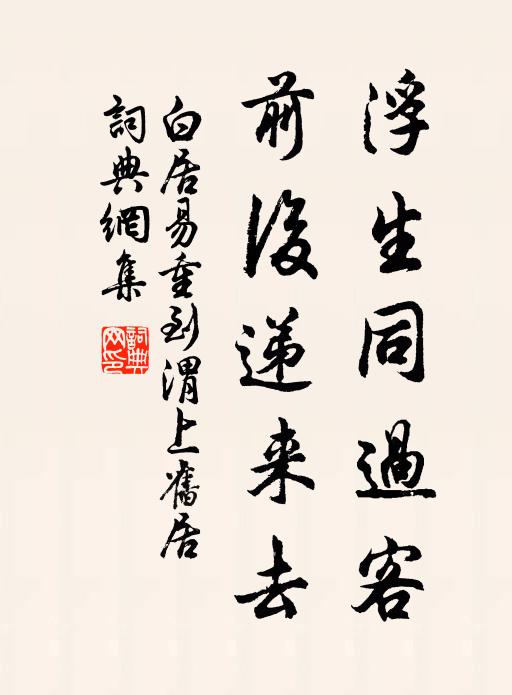 浮生同過客
前後遞来去
白居易重到渭上舊居
詞典網集
詞典網印